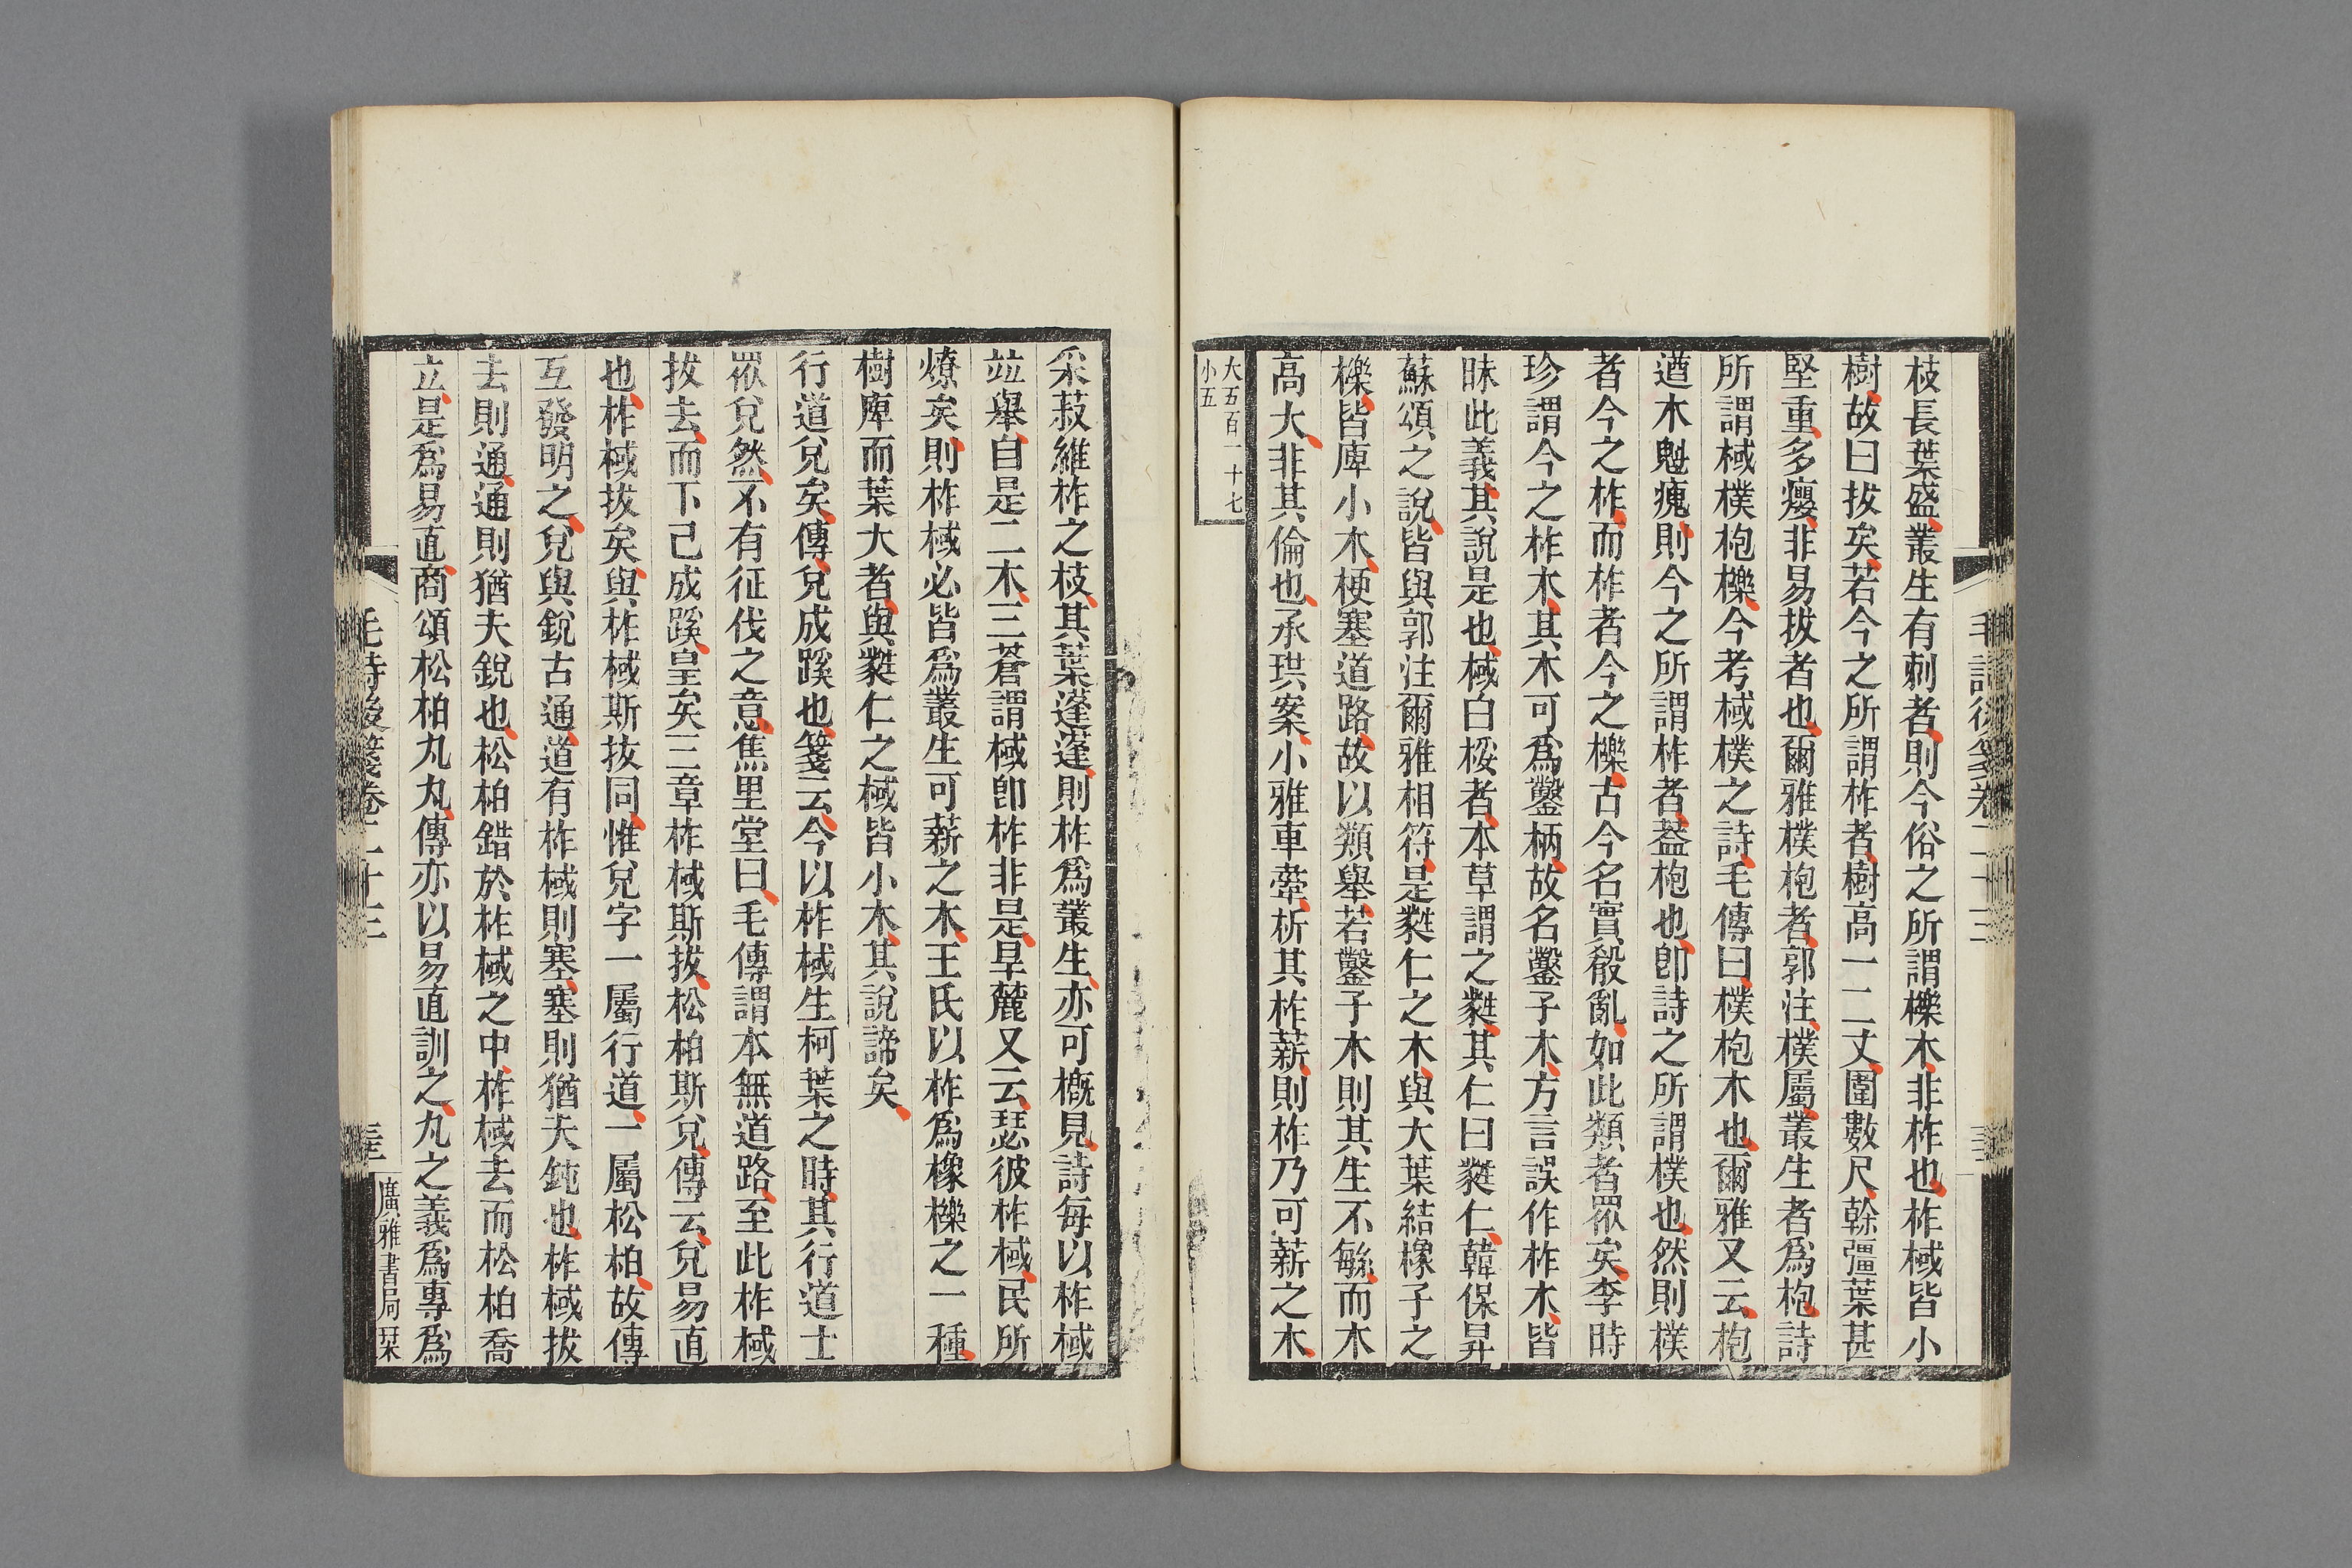 枝長葉盛叢生有刺者則今俗之所謂櫟木非柞也柞棫皆小
樹故曰拔矣若今之所謂柞者樹高一二丈圍數尺榦彊葉甚
堅重多癭非易拔者也爾雅樸枹者郭注樸屬叢生者爲枹詩
所謂棫樸枹櫟今考棫樸之詩毛傳曰樸枹木也爾雅又云枹
遒木魁瘣則今之所謂柞者葢枹也卽詩之所謂樸也然則樸
者今之柞而柞者今之櫟古今名實殽亂如此類者眾矣李時
珍謂今之柞木其木可爲鑿柄故名鑿子木方言誤作柞木皆
昧此義其說是也棫白桵者本草謂之蕤其仁曰蕤仁韓保昇
蘇頌之說皆與郭注爾雅相符是蕤仁之木與大葉結橡子之
櫟皆庳小木梗塞道路故以類舉若鑿子木則其生不緐而木
高大非其倫也承珙案小雅車舝析其柞薪則柞乃可薪之木
大五百一十七
小五
毛詩後箋卷二十三
采菽維柞之枝其葉蓬蓬則柞爲叢生亦可槪見詩每以柞棫
竝舉自是二木三蒼謂棫卽柞非是旱麓又云瑟彼柞棫民所
燎矣則柞棫必皆爲叢生可薪之木王氏以柞爲橡櫟之一種
樹庳而葉大者與蕤仁之棫皆小木其說諦矣
行道兌矣傳兌成蹊也箋云今以柞棫生柯葉之時其行道士
眾兌然不有征伐之意焦里堂曰毛傳謂本無道路至此柞棫
拔去而下己成蹊皇矣三章柞棫斯拔松柏斯兌傳云兌易直
也柞棫拔矣與柞棫斯拔同惟兌字一屬行道一屬松柏故傳
互發明之兌與銳古通道有柞棫則塞塞則猶夫鈍也柞棫拔
去則通通則猶夫銳也松柏錯於柞棫之中柞棫去而松柏喬
立是爲易直商頌松柏丸丸傳亦以易直訓之丸之義爲專爲
毛詩後箋卷二十三
廣雅書局栞